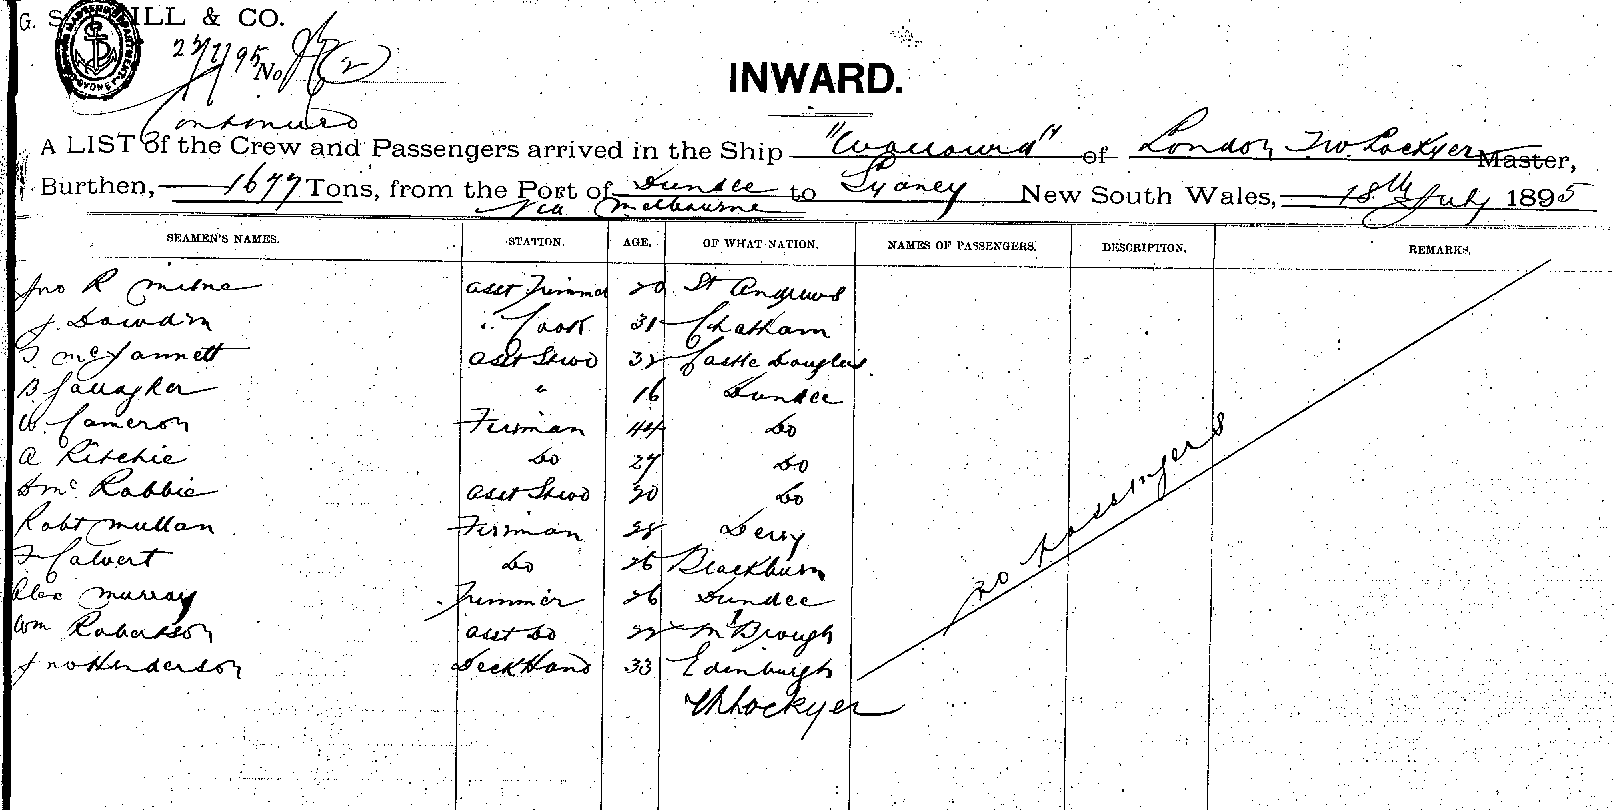 G. S ILL & CO.
23/7/95 No (2)
INWARD.
Continued
A LIST of the Crew and Passengers arrived in the Ship of London Lockyer Master,
Burthen, 1677 Tons, from the Port of Dundee to Sydney New South Wales, 18th July 1895
via Melbourne
SEAMEN'S NAMES. STATION. AGE. OF WHAT NATION. NAMES OF PASSENGERS. DESCRIPTION. REMARKS.
Jno R Milne Asst Trimmer 20 St Andrews
J. Dowdin " Cook 31 Chatham
McJannett Asst Stwd 32 Castle Douglas.
B Gallagher " 16 Dundee
W. Cameron Fireman 44 Do
A Ritchie Do 27 Do
D Mc Robbie Asst Stwd 20 Do
Robt Mullan Fireman 28 Derry
F Calvert Do 26 Blackburn
Alex Murray Trimmer 26 Dundee
Wm Robertson Asst Do 22 Brough
Jno Henderson Deck Hand 33 Edinburgh
Lockyer
no passengers